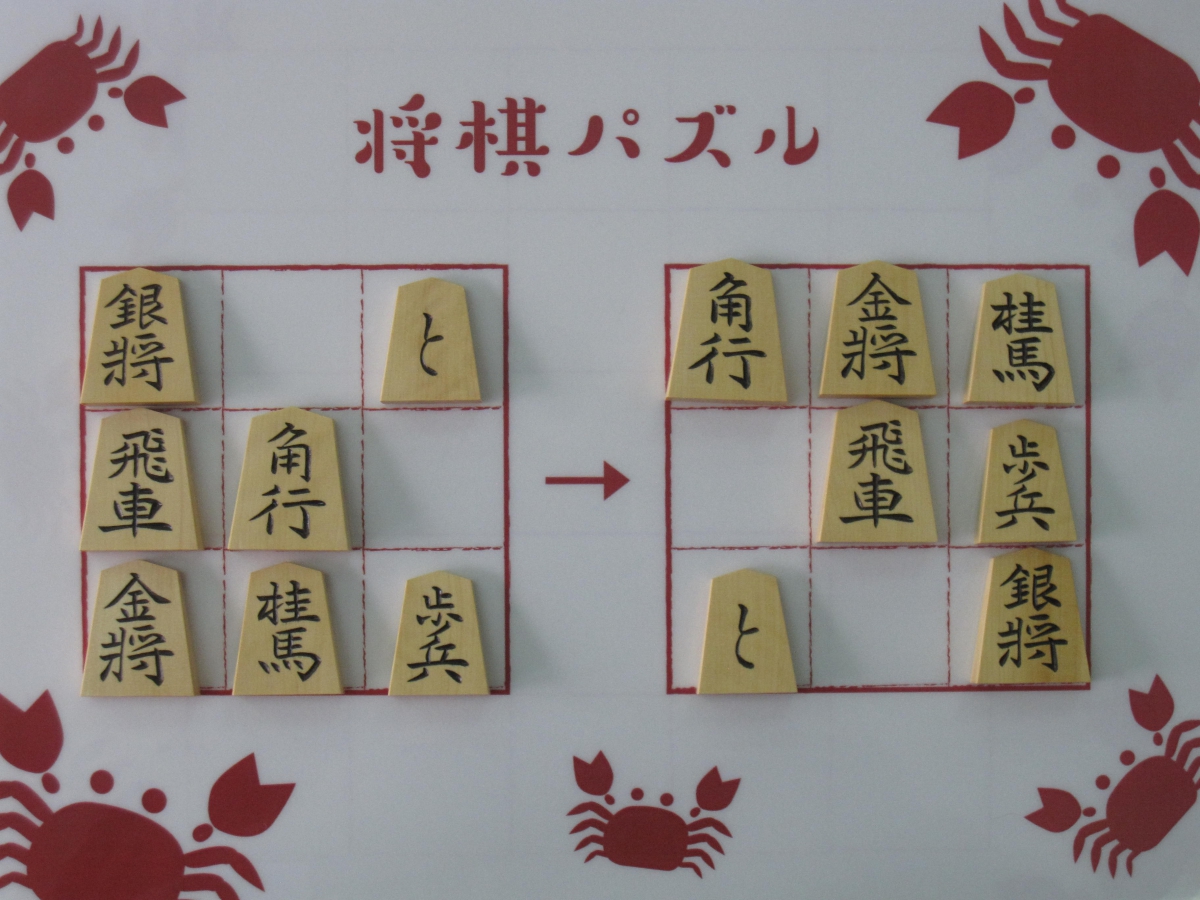 将棋パズル
銀将 と
飛車 角行
金将 桂馬 歩兵
→
角行 金将 桂馬
飛車 歩兵
と 銀将